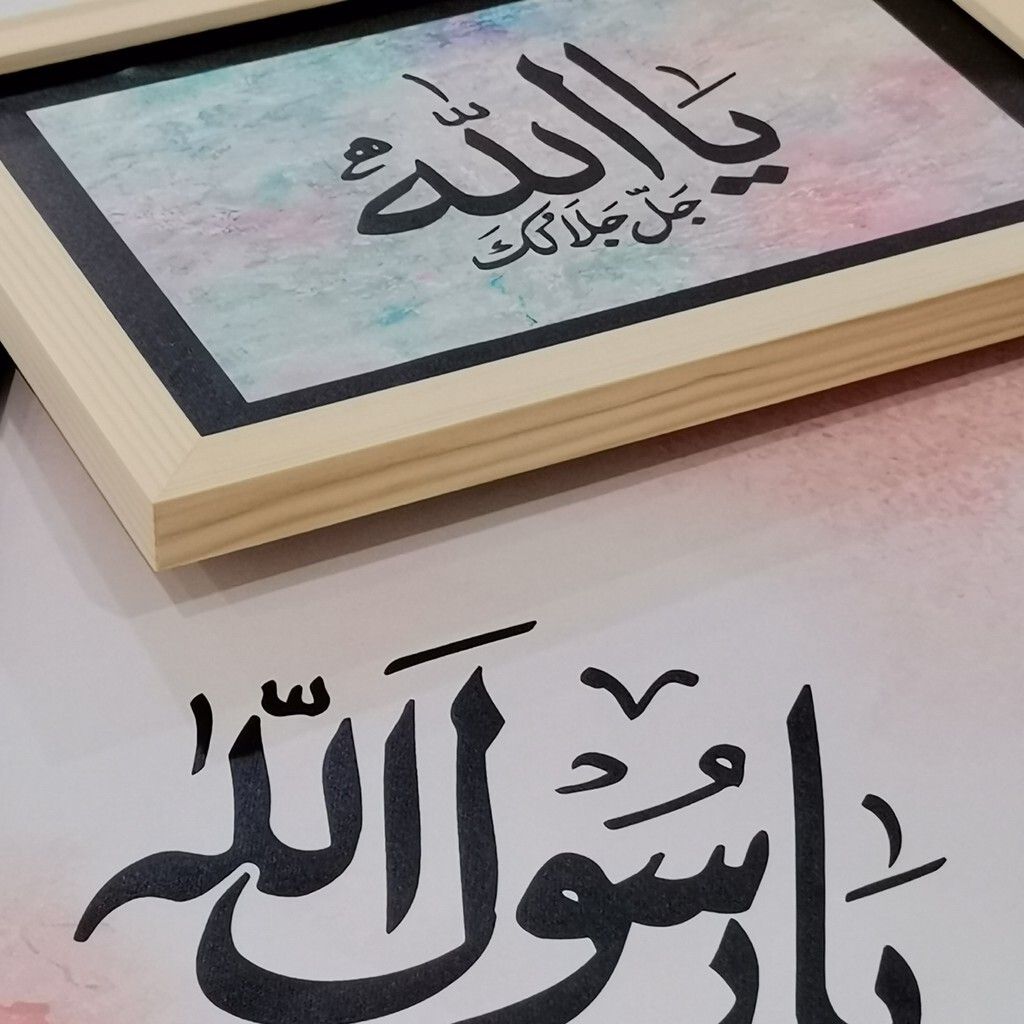 يَا اللّٰهُ
جَلَّ جَلَالُكَ
يَا رَسُوْلَ اللّٰه